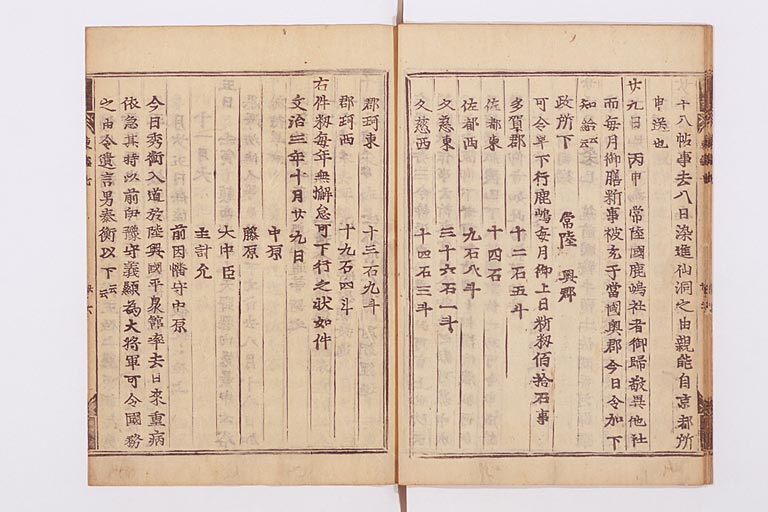 十八帖事去八日染進仙洞之由親能自京都所
申送也
廿九日 丙申 常陸國鹿嶋社者御歸敬異他社
而毎月御膳新事被充于當國奥郡今日令加下
知給云云
政所下 常陸 奥郡
可令早下行鹿嶋毎月御上日新籾佰拾石事
多賀郡 十二石五斗
佐都東 十四石
佐都西 九石八斗
久慈東 三十六石一斗
久慈西 十四石三斗
郡珂東 十三石九斗
郡珂西 十九石四斗
右件籾毎年無懈怠可下行之状如件
文治三年十月廿九日
中原
藤原
大中臣
主計允
前因幡守中原
今日秀衡入道於陸奥國平泉館卒去日来重病
依急其時以前伊豫守義顯為大将軍可令國務
之由令遺言男泰衡以下云云